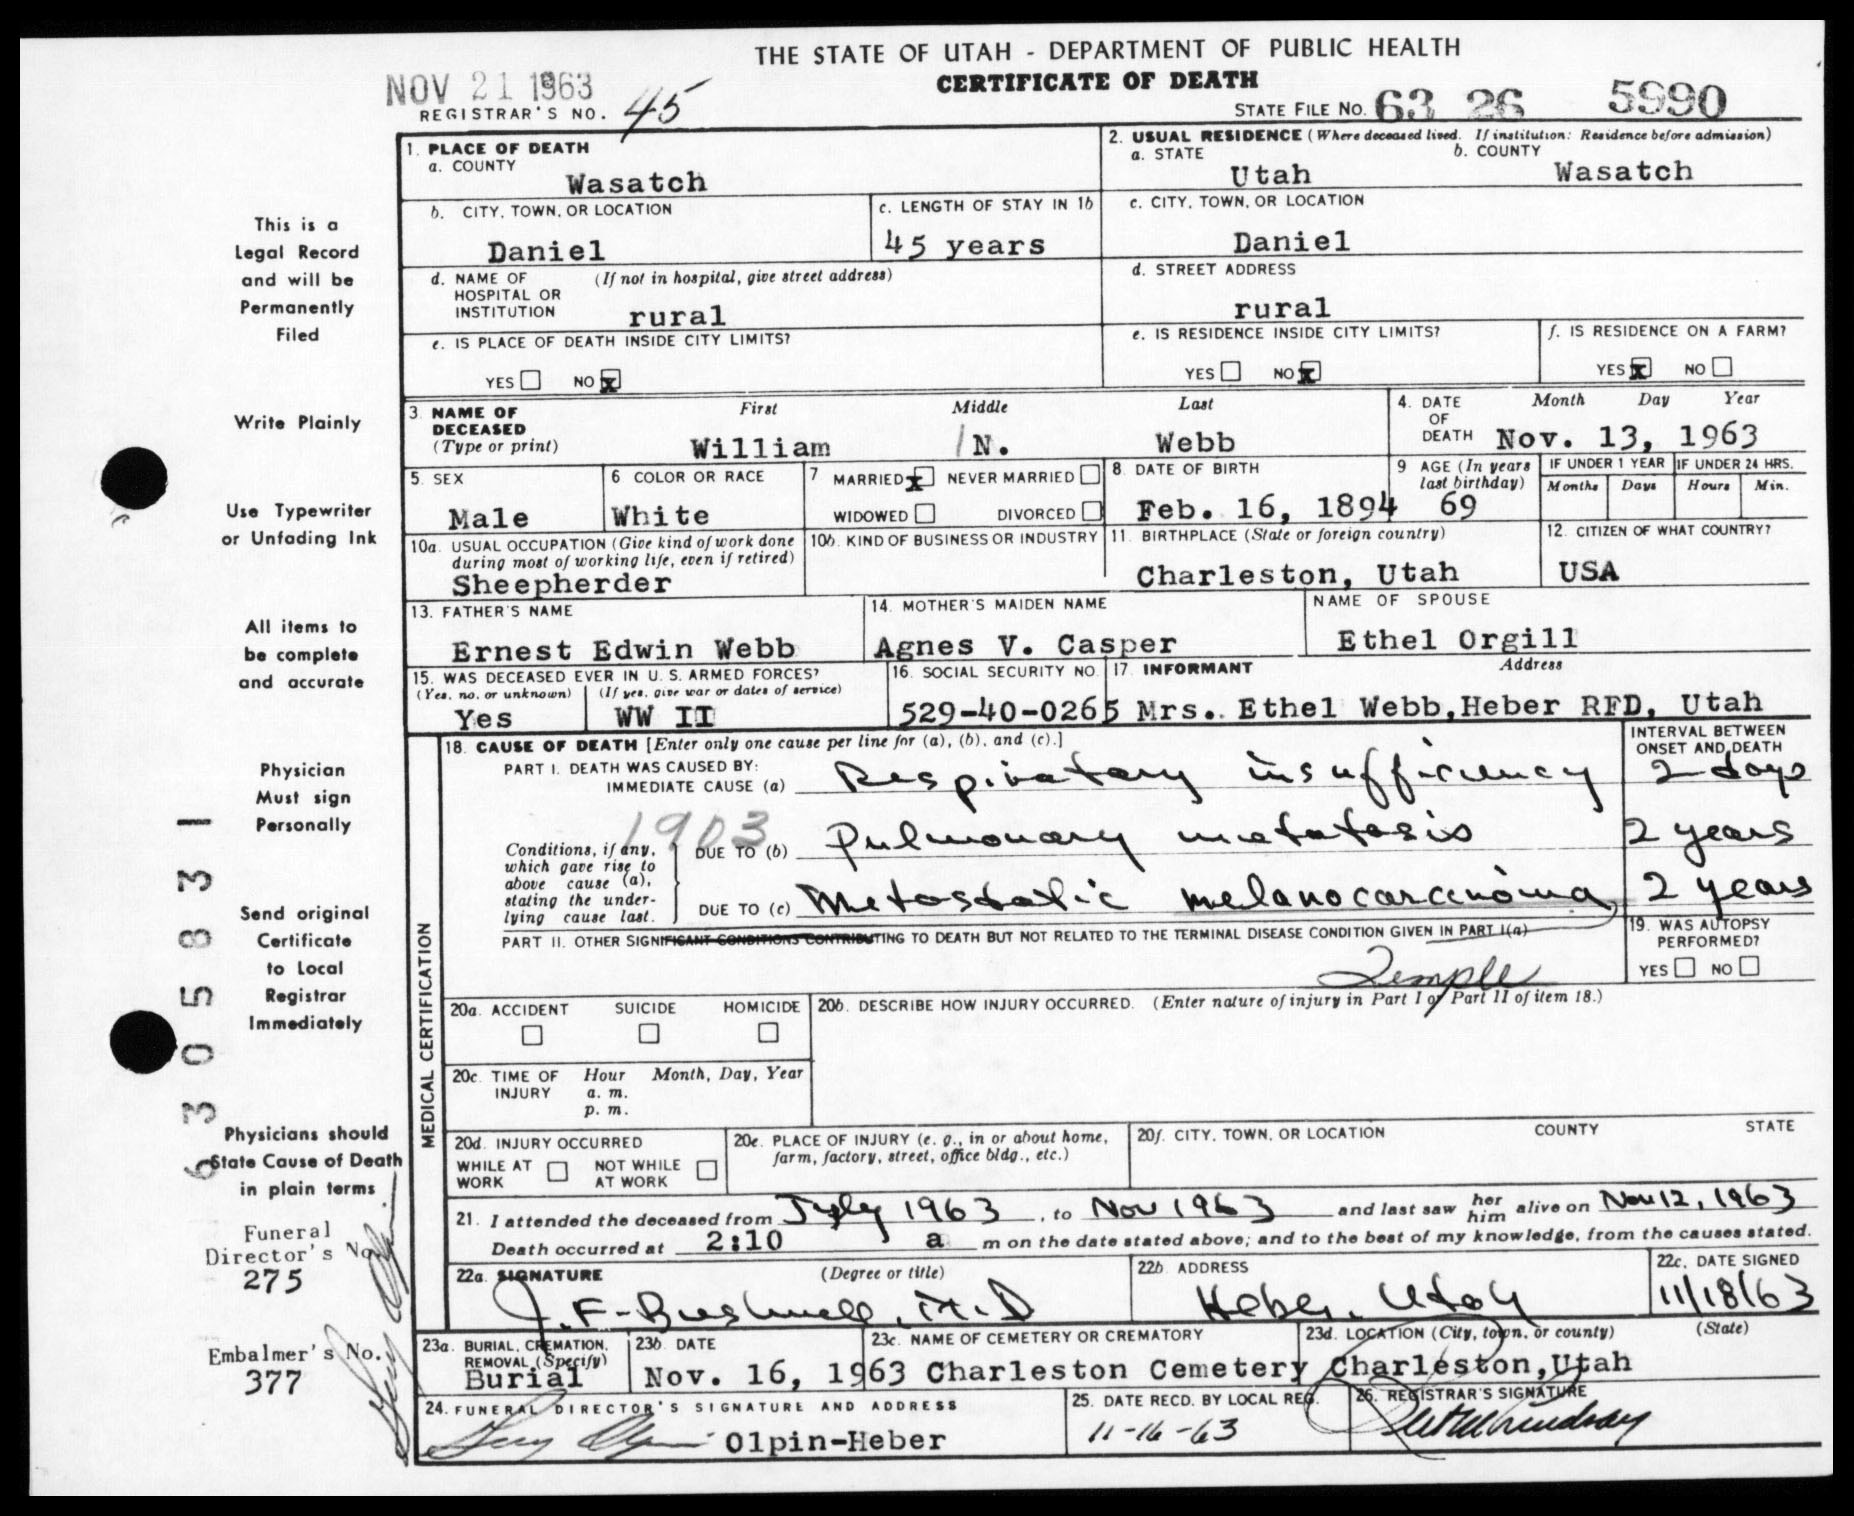 THE STATE OF UTAH - DEPARTMENT OF PUBLIC HEALTH
NOV 21 1963
CERTIFICATE OF DEATH
REGISTRAR'S NO. 45
STATE FILE NO. 63 26 5990
1. PLACE OF DEATH
a. COUNTY
Wasatch
2. USUAL RESIDENCE (Where deceased lived. If institution: Residence before admission)
a. STATE
Utah
b. COUNTY
Wasatch
b. CITY, TOWN, OR LOCATION
Daniel
c. LENGTH OF STAY IN 1b
45 years
c. CITY, TOWN, OR LOCATION
Daniel
d. NAME OF HOSPITAL OR INSTITUTION
(If not in hospital, give street address)
rural
d. STREET ADDRESS
rural
e. IS PLACE OF DEATH INSIDE CITY LIMITS?
YES NO X
e. IS RESIDENCE INSIDE CITY LIMITS?
YES NO X
f. IS RESIDENCE ON A FARM?
YES X NO
3. NAME OF DECEASED
(Type or print)
First
Middle
Last
William N. Webb
4. DATE OF DEATH
Month Day Year
Nov. 13, 1963
5. SEX
Male
6 COLOR OR RACE
White
7 MARRIED X NEVER MARRIED
WIDOWED DIVORCED
8 DATE OF BIRTH
Feb. 16, 1894
9 AGE (In years last birthday)
69
IF UNDER 1 YEAR
Months Days
IF UNDER 24 HRS.
Hours Min.
10a. USUAL OCCUPATION (Give kind of work done during most of working life, even if retired)
Sheepherder
10b. KIND OF BUSINESS OR INDUSTRY
11. BIRTHPLACE (State or foreign country)
Charleston, Utah
12. CITIZEN OF WHAT COUNTRY?
USA
13. FATHER'S NAME
Ernest Edwin Webb
14. MOTHER'S MAIDEN NAME
Agnes V. Casper
NAME OF SPOUSE
Ethel Orgill
15. WAS DECEASED EVER IN U. S. ARMED FORCES?
(Yes, no, or unknown)
Yes
(If yes, give war or dates of service)
WW II
16. SOCIAL SECURITY NO.
529-40-0265
17 INFORMANT
Address
Mrs. Ethel Webb, Heber RFD, Utah
MEDICAL CERTIFICATION
18. CAUSE OF DEATH [Enter only one cause per line for (a), (b), and (c).]
INTERVAL BETWEEN ONSET AND DEATH
PART I. DEATH WAS CAUSED BY:
IMMEDIATE CAUSE (a) Respiratory insufficiency 2 days
1903
Conditions, if any, which gave rise to above cause (a), stating the under-lying cause last.
DUE TO (b) Pulmonary metatasis 2 years
DUE TO (c) Metastatic melanocarcinoma 2 years
PART II. OTHER SIGNIFICANT CONDITIONS CONTRIBUTING TO DEATH BUT NOT RELATED TO THE TERMINAL DISEASE CONDITION GIVEN IN PART I(a)
Temple
19. WAS AUTOPSY PERFORMED?
YES NO
20a. ACCIDENT SUICIDE HOMICIDE
20b. DESCRIBE HOW INJURY OCCURRED. (Enter nature of injury in Part I or Part II of item 18.)
20c. TIME OF INJURY
Hour Month, Day, Year
a. m.
p. m.
20d. INJURY OCCURRED
WHILE AT WORK
NOT WHILE AT WORK
20e. PLACE OF INJURY (e. g., in or about home, farm, factory, street, office bldg., etc.)
20f. CITY, TOWN, OR LOCATION COUNTY STATE
21. I attended the deceased from July 1963, to Nov 1963 and last saw her him alive on Nov 12, 1963
Death occurred at 2:10 a m on the date stated above; and to the best of my knowledge, from the causes stated.
22a. SIGNATURE
(Degree or title)
J. F. Bushnell, M.D
22b. ADDRESS
Heber, Utah
22c. DATE SIGNED
11/18/63
23a. BURIAL, CREMATION, REMOVAL (Specify)
Burial
23b. DATE
Nov. 16, 1963
23c. NAME OF CEMETERY OR CREMATORY
Charleston Cemetery
23d. LOCATION (City, town, or county) (State)
Charleston, Utah
24. FUNERAL DIRECTOR'S SIGNATURE AND ADDRESS
Olpin-Heber
25. DATE RECD. BY LOCAL REG.
11-16-63
26. REGISTRAR'S SIGNATURE
This is a
Legal Record
and will be
Permanently
Filed
Write Plainly
Use Typewriter
or Unfading Ink
All items to
be complete
and accurate
Physician
Must sign
Personally
Send original
Certificate
to Local
Registrar
Immediately
Physicians should
State Cause of Death
in plain terms
Funeral
Director's No.
275
Embalmer's No.
377
6305831